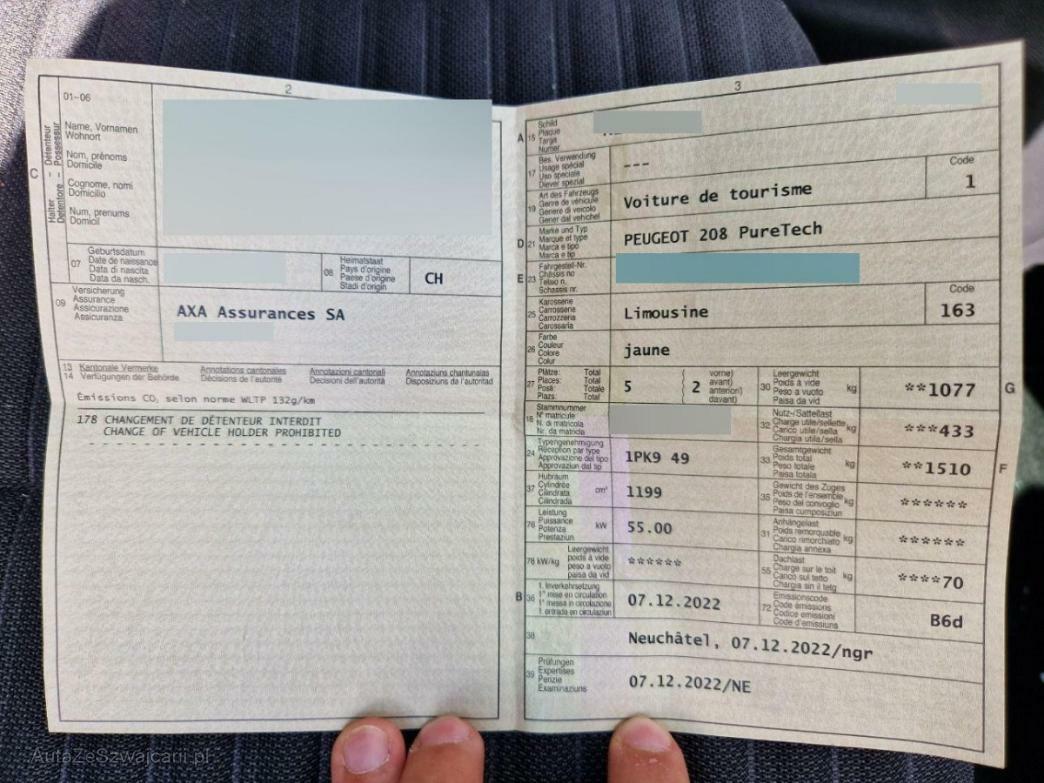 2
01-06
C
Halter – Détenteur
Detentore – Possessur
Name, Vornamen
Wohnort
Nom, prénoms
Domicile
Cognome, nomi
Domicilio
Num, prenums
Domicil
07
Geburtsdatum
Date de naissance
Data di nascita
Data da nasch.
08
Heimatstaat
Pays d'origine
Paese d'origine
Stadi d'origin
CH
09
Versicherung
Assurance
Assicurazione
Assicuranza
AXA Assurances SA
13 Kantonale Vermerke
14 Verfügungen der Behörde
Annotations cantonales
Décisions de l'autorité
Annotazioni cantonali
Decisioni dell'autorità
Annotaziuns chantunalas
Disposiziuns da l'autoritad
Émissions CO₂ selon norme WLTP 132g/km
178 CHANGEMENT DE DÉTENTEUR INTERDIT
CHANGE OF VEHICLE HOLDER PROHIBITED
3
A 15
Schild
Plaque
Targa
Numer
17
Bes. Verwendung
Usage spécial
Uso speciale
Diever spezial
---
19
Art des Fahrzeugs
Genre de véhicule
Genere di veicolo
Gener dal vehichel
Voiture de tourisme
Code
1
D 21
Marke und Typ
Marque et type
Marca e tipo
Marca e tip
PEUGEOT 208 PureTech
E 23
Fahrgestell-Nr.
Châssis no
Telaio n.
Schassis nr.
25
Karosserie
Carrosserie
Carrozzeria
Carossaria
Limousine
Code
163
26
Farbe
Couleur
Colore
Colur
jaune
27
Plätze: Total
Places: Total
Posti: Totale
Plazs: Total
5
( 2
vorne)
avant)
anteriori)
davant)
30
Leergewicht
Poids à vide
Peso a vuoto
Paisa da vid
kg
**1077
G
18
Stammnummer
N° matricule
N. di matricola
Nr. da matricla
32
Nutz-/Sattellast
Charge utile/sellette
Carico utile/sella
Chargia utila/sella
kg
***433
24
Typengenehmigung
Réception par type
Approvazione del tipo
Approvaziun dal tip
1PK9 49
33
Gesamtgewicht
Poids total
Peso totale
Paisa totala
kg
**1510
F
37
Hubraum
Cylindrée
Cilindrata
Cilindrada
cm³
1199
35
Gewicht des Zuges
Poids de l'ensemble
Peso del convoglio
Paisa cumposiziun
kg
******
76
Leistung
Puissance
Potenza
Prestaziun
kW
55.00
31
Anhängelast
Poids remorquable
Carico rimorchiato
Chargia annexa
kg
******
78 kW/kg
Leergewicht
poids à vide
peso a vuoto
paisa da vid
******
55
Dachlast
Charge sur le toit
Carico sul tetto
Chargia sin il tetg
kg
****70
B 36
1. Inverkehrsetzung
1re mise en circulation
1a messa in circolazione
1. entrada en circulaziun
07.12.2022
72
Emissionscode
Code émissions
Codice emissioni
Code d'emissiuns
B6d
38
Neuchâtel, 07.12.2022/ngr
39
Prüfungen
Expertises
Perizie
Examinaziuns
07.12.2022/NE
AutaZeSzwajcarii.pl